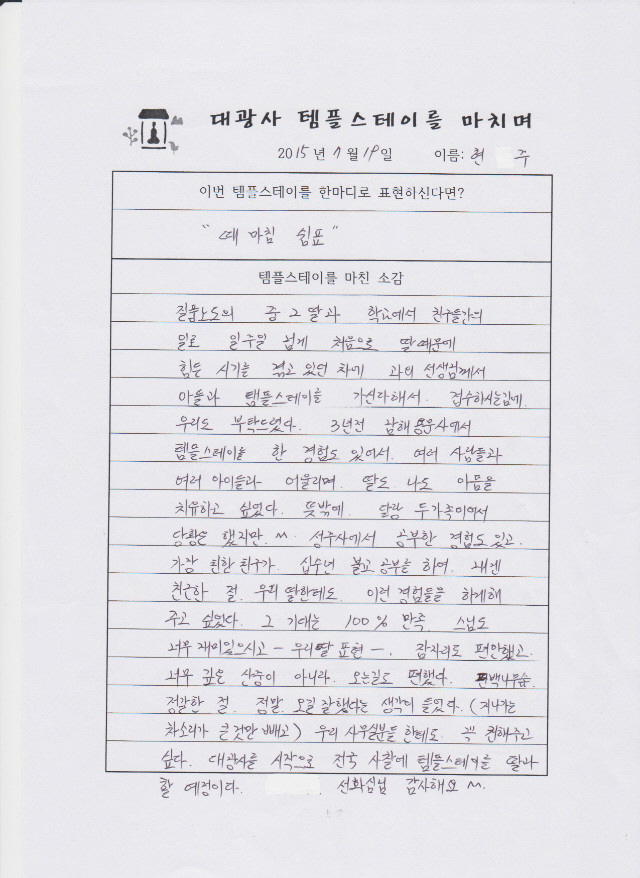 대광사 템플스테이를 마치며
2015년 7월 19일 이름: 현 주
이번 템플스테이를 한마디로 표현하신다면?
"때 마침 쉼표"
템플스테이를 마친 소감
질풍노도의 중2 딸과 학교에서 친구들간의
일로 일주일 넘게 처음으로 딸때문에
힘든 시기를 겪고 있던 차에 과외 선생님께서
아들과 템플스테이를 가신다해서. 접수하시는김에.
우리도 부탁드렸다. 3년전 남해 용문사에서
템플스테이를 한 경험도 있어서. 여러 사람들과
여러 아이들과 어울리며. 딸도 나도 아픔을
치유하고 싶었다. 뜻밖에. 달랑 두가족이어서
당황은 했지만. ^^. 성주사에서 공부한 경험도 있고.
가장 친한 친구가. 십수년 불교 공부를 하여. 내겐
친근한 절. 우리 딸한테도. 이런 경험들을 하게해
주고 싶었다. 그 기대는 100% 만족. 스님도
너무 재미있으시고 - 우리딸 표현 -. 잠자리도 편안했고.
너무 깊은 산중이 아니라. 오는길도 편했다. 편백나무숲.
정갈한 절. 정말. 오길 잘했다는 생각이 들었다. (지나가는
차소리가 큰것만 빼고) 우리 사무실분들 한테도. 꼭 권해주고
싶다. 대광사를 시작으로 전국 사찰에 템플스테이를 딸과
할 예정이다. 선화심님 감사해요 ^^.